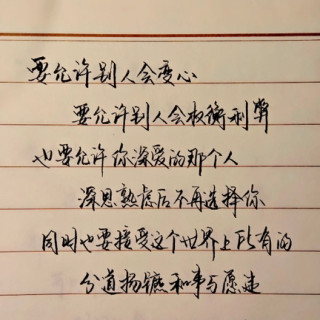 要允许别人会变心
要允许别人会权衡利弊
也要允许你深爱的那个人
深思熟虑后不再选择你
同时也要接受这个世界上所有的
分道扬镳和事与愿违